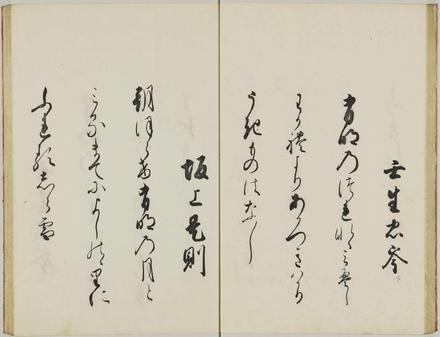 壬生忠岑
有明乃つれなくみえし
わかれよりあかつきはかり
うきものはなし
坂上是則
朝ほらけ有明乃月と
みるまてによしのゝ里に
ふれるしら雪